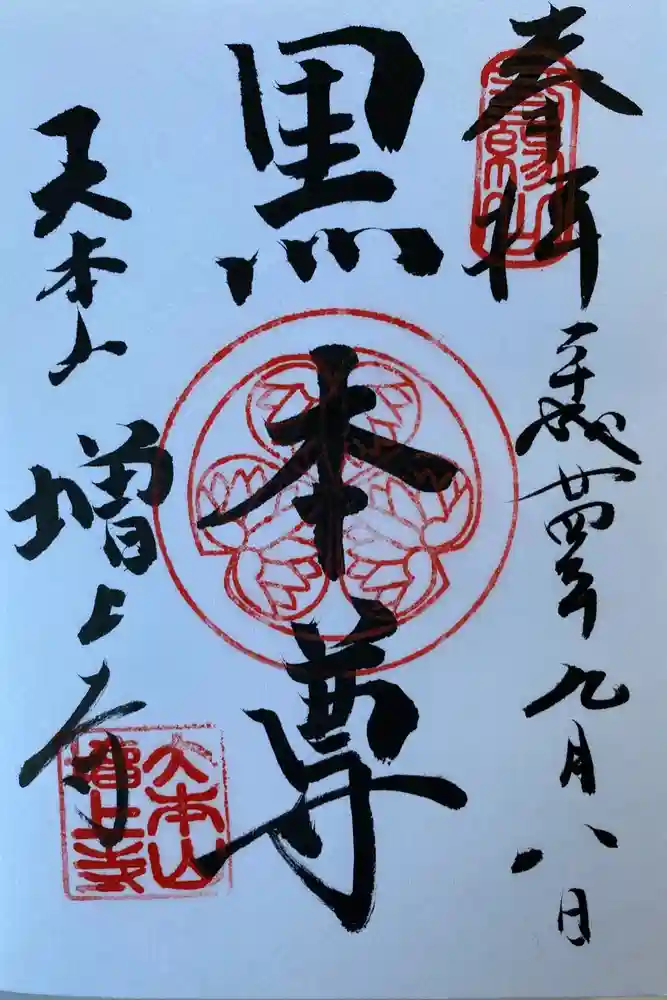 奉拝
平成廿四年九月八日
黒本尊
大本山
増上寺
大本山
増上寺